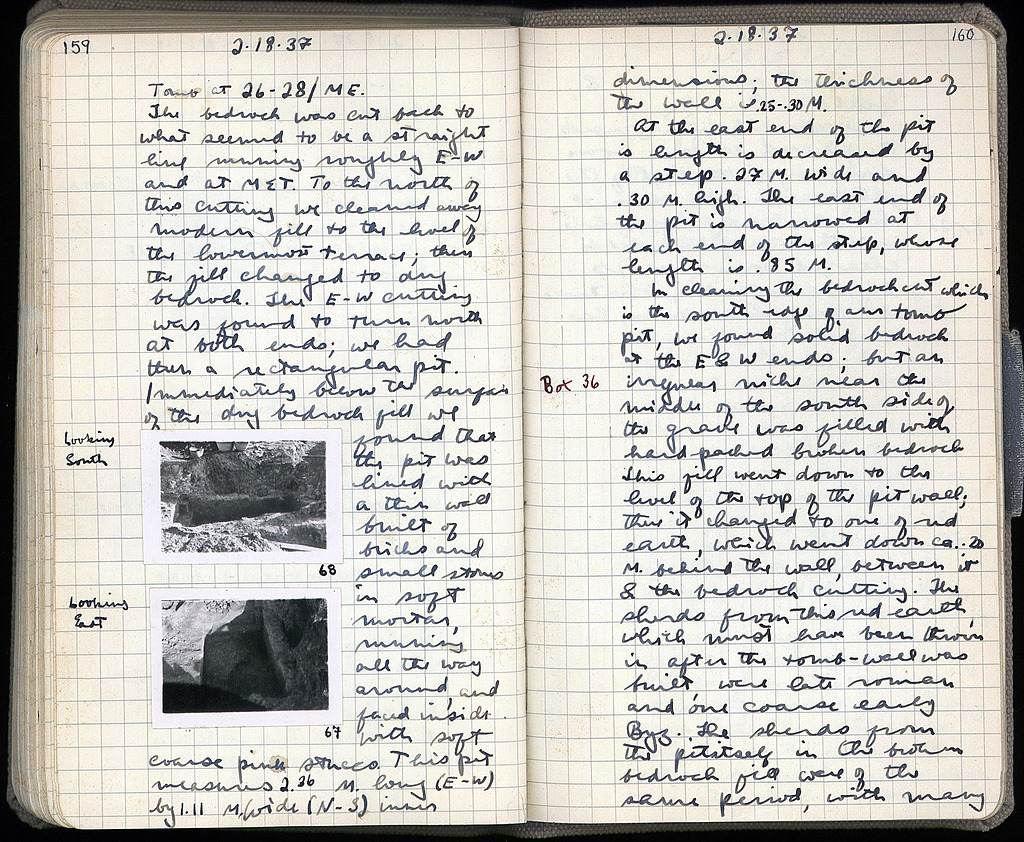 159
2·18·37
Tomb at 26-28/ME.
The bedrock was cut back to
what seemed to be a straight
line running roughly E-W
and at ME. To the north of
this cutting we cleared away
modern fill to the level of
the lowermost terrace; then
the fill changed to dug
bedrock. The E-W cutting
was found to turn north
at both ends; we had
then a rectangular pit.
Immediately below the surface
of the dug bedrock fill we
found that
the pit was
lined with
a thin wall
built of
bricks and
small stones
in soft
mortar,
running
all the way
around, and
faced inside
with soft
coarse pink stucco. This pit
measures 2.36 M. long (E-W)
by 1.11 M. wide (N-S) inner
Looking
South
68
Looking
East
67
160
2·18·37
dimensions; the thickness of
the wall is .25-.30 M.
At the east end of the pit
is length is decreased by
a step .27 M. wide and
.30 M. high. The east end of
the pit is narrowed at
each end of the step, whose
length is .85 M.
In cleaning the bedrock cut which
is the south edge of our tomb
pit, we found solid bedrock
at the E & W ends; but an
irregular niche near the
middle of the south side of
the grave was filled with
hard packed broken bedrock
This fill went down to the
level of the top of the pit wall;
then it changed to one of red
earth, which went down ca. .20
M. behind the wall, between it
& the bedrock cutting. The
sherds from this red earth,
which must have been thrown
in after the tomb-wall was
built, were late roman
and one coarse early
Byz. The sherds from
the pit itself in the broken
bedrock fill were of the
same period, with many
Box 36